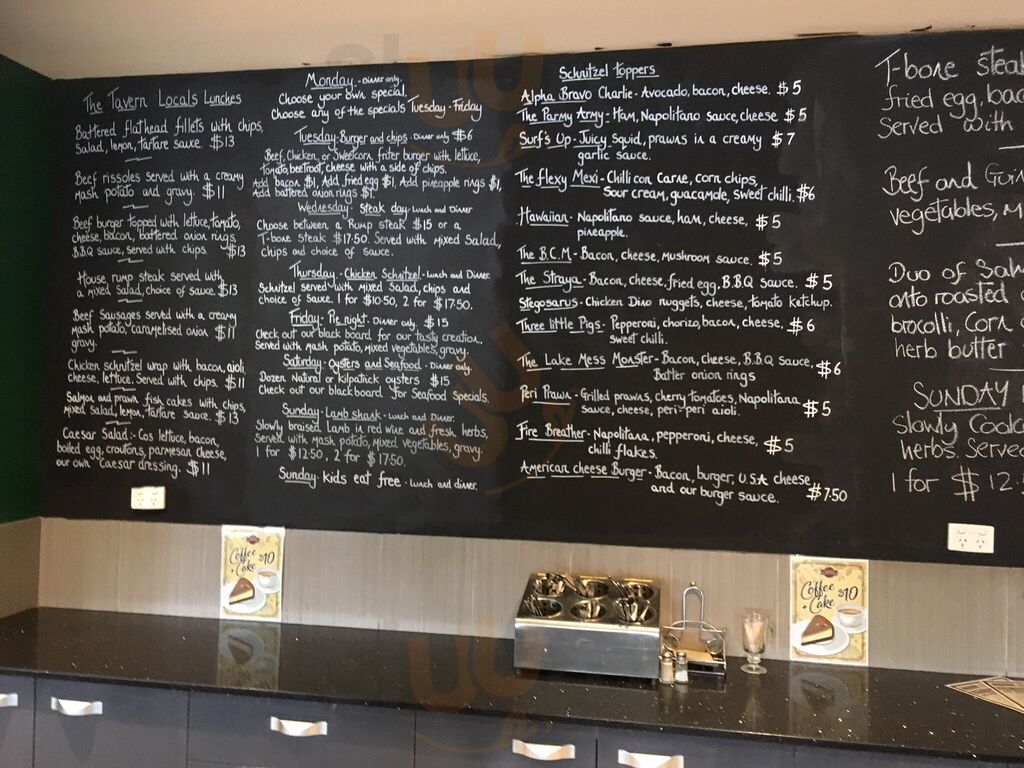 The Tavern Locals Lunches
Battered flathead fillets with chips,
Salad, lemon, tartare sauce. $13
Beef rissoles served with a creamy
mash potato and gravy. $11
Beef burger topped with lettuce, tomato,
cheese, bacon, battered onion rings,
B.B.Q sauce, served with chips. $13
House rump steak served with
a mixed Salad, choice of sauce. $13
Beef Sausages served with a creamy
mash potato, caramelised onion $11
gravy.
Chicken schnitzel wrap with bacon, aioli
cheese, lettuce. Served with chips. $11
Salmon and prawn fish cakes with chips,
mixed Salad, lemon, tartare sauce. $13
Caesar Salad:- Cos lettuce, bacon,
boiled egg, croutons, parmesan cheese,
our own Caesar dressing. $11
Monday - Dinner only.
Choose your own special,
Choose any of the specials Tuesday - Friday
Tuesday - Burger and chips - Dinner only $6
Beef, Chicken, or Sweetcorn friter burger with lettuce,
tomato, beetroot, cheese with a side of chips.
Add bacon $1, Add fried egg $1, Add pineapple rings $1,
Add battered onion rings $1.
Wednesday - Steak day - Lunch and Dinner
Choose between a Rump steak $15 or a
T-bone steak $17.50. Served with Mixed Salad,
Chips and choice of Sauce.
Thursday - Chicken Schnitzel - Lunch and Dinner.
Schnitzel served with Mixed Salad, chips and
choice of sauce. 1 for $10.50, 2 for $17.50.
Friday - Pie night - Dinner only. $15
Check out our black board for our tasty creation.
Served with mash potato, mixed vegetables, gravy.
Saturday - Oysters and Seafood - Dinner only.
Dozen Natural or kilpatrick oysters $15
Check out our black board for Seafood Specials.
Sunday - Lamb shank - Lunch and Dinner.
Slowly braised Lamb in red wine and fresh herbs,
Served with mash potato, mixed vegetables, gravy.
1 for $12.50, 2 for $17.50.
Sunday - kids eat free - Lunch and dinner.
Schnitzel toppers
Alpha Bravo Charlie - Avocado, bacon, cheese. $5
The Parmy Army - Ham, Napolitano sauce, cheese $5
Surf's Up - Juicy Squid, prawns in a creamy $7
garlic sauce.
The flexy Mexi - Chilli con Carne, corn chips,
Sour cream, guacamole, sweet chilli. $6
Hawaiian - Napolitano sauce, ham, cheese, $5
pineapple.
The B.C.M - Bacon, cheese, mushroom sauce. $5
The Straya - Bacon, cheese, fried egg, B.B.Q sauce. $5
Stegosarus - Chicken Dino nuggets, cheese, tomato ketchup.
Three little Pigs - Pepperoni, chorizo, bacon, cheese, $6
sweet chilli.
The Lake Mess Monster - Bacon, cheese, B.B.Q sauce, $6
Batter onion rings
Peri Prawn - Grilled prawns, cherry tomatoes, Napolitana
sauce, cheese, peri-peri aioli. $5
Fire Breather - Napolitana, pepperoni, cheese, $5
chilli flakes.
American cheese Burger - Bacon, burger, U.S.A cheese
and our burger sauce. $7.50
T-bone steak
fried egg, bac
Served with
Beef and Guin
vegetables, m
Duo of Salm
onto roasted
brocolli, Corn
herb butter
SUNDAY
Slowly Cook
herbs. Serve
1 for $12.
Coffee $10
+ Cake
Coffee $10
+ Cake